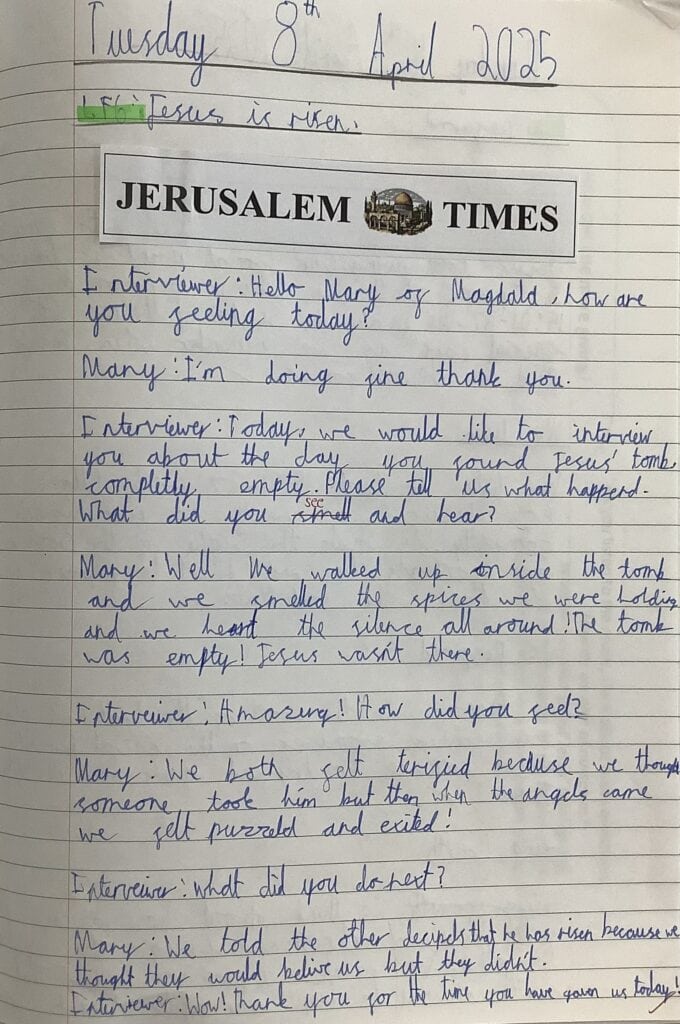 Tuesday 8th April 2025
LF6: Jesus is risen.
JERUSALEM TIMES
Interviewer: Hello Mary of Magdald, how are
you feeling today?
Mary: I'm doing fine thank you.
Interviewer: Today, we would like to interview
you about the day you found Jesus' tomb
completly empty. Please tell us what happend.
What did you see smell and hear?
Mary: Well We walked up inside the tomb
and we smelled the spices we were holding
and we heart the silence all around! The tomb
was empty! Jesus wasn't there.
Interveiwer: Amazing! How did you feel?
Mary: We both felt terified because we though
someone took him but then when the angels came
we felt puzzeld and exited!
Interveiwer: What did you do next?
Mary: We told the other decipels that he has risen because we
thought they would belive us but they didn't.
Interviewer: Wow! Thank you for the time you have gaven us today!